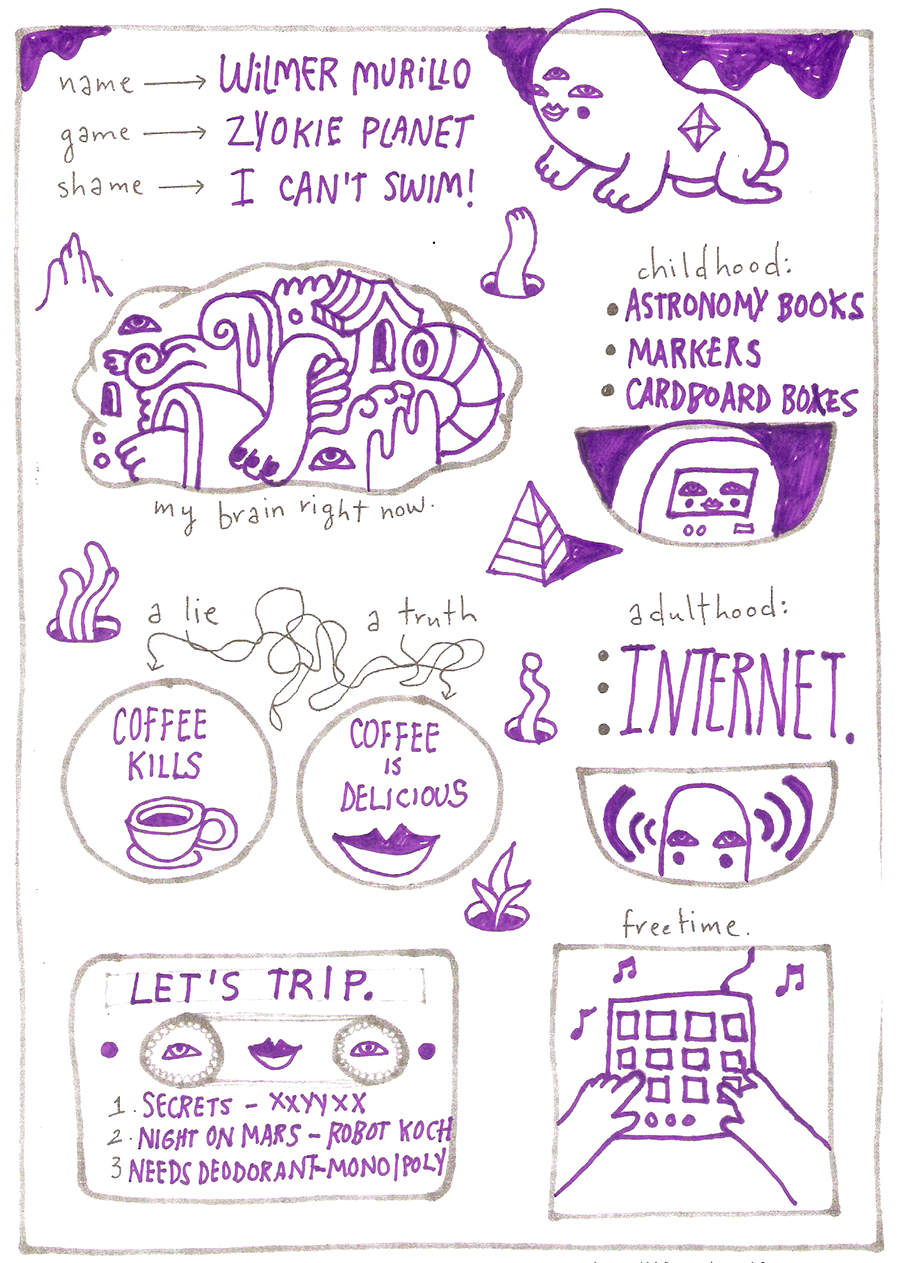 name → WiLMER MURiLLO
game → ZYOKIE PLANET
shame → I CAN'T SWIM!
childhood:
• ASTRONOMY BOOKS
• MARKERS
• CARDBOARD BOXES
my brain right now.
a lie
a truth
COFFEE
KILLS
COFFEE
IS
DELICIOUS
adulthood:
INTERNET.
freetime.
LET'S TRIP.
1. SECRETS - XXYYXX
2. NIGHT ON MARS - ROBOT KOCH
3 NEEDS DEODORANT-MONO|POLY